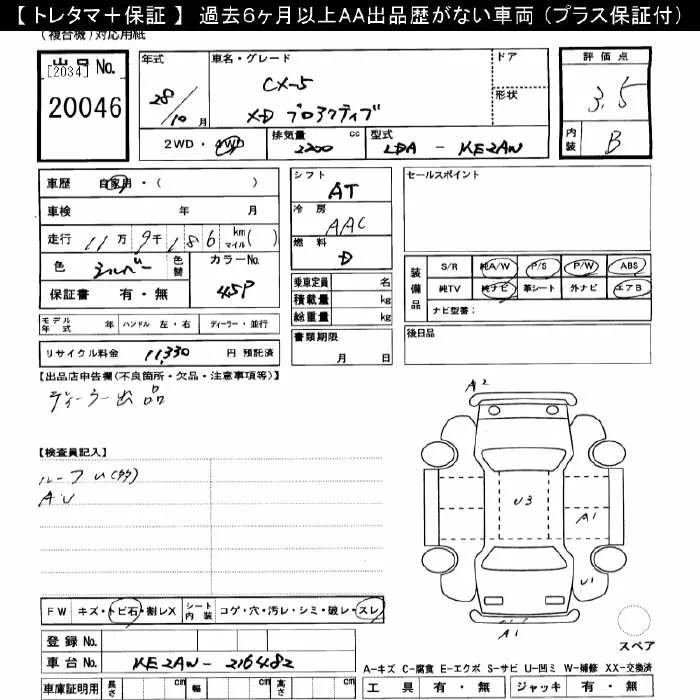 【トレタマ＋保証】 過去6ヶ月以上AA出品歴がない車両（プラス保証付）
(複合機)対応用紙
出品No.
[2034]
20046
年式
28/10月
車名・グレード
CX-5
XD プロアクティブ
ドア
形状
評価点
3.5
内装
B
2WD・4WD
排気量 2200 cc
型式 LDA - KE2AW
車歴 自家用・( )
車検 年 月
走行 11万9千186 km マイル( )
色 シルバー 色替 カラーNo. 45P
保証書 有・無
モデル年式 年 ハンドル 左・右 ディーラー・並行
リサイクル料金 11,330 円 預託済
シフト AT
冷房 AAC
燃料 D
乗車定員 名
積載量 kg
総重量 kg
書類期限
月 日
セールスポイント
装備品
S/R 純A/W P/S P/W ABS
純TV 純ナビ 革シート 外ナビ エアB
ナビ型番：
後日品
【出品店申告欄(不良箇所・欠品・注意事項等)】
ディーラー出品
【検査員記入】
ルーフ U(多)
A.U
A2
U3
A1
U1
A1
スペア
FW キズ・トビ石・割レX シート内装 コゲ・穴・汚レ・シミ・破レ・スレ
登録No.
車台No. KE2AW-216482
車庫証明用 長さ cm 幅 cm 高さ cm
A-キズ C-腐食 E-エクボ S-サビ U-凹ミ W-補修 XX-交換済
工具 有・無 ジャッキ 有・無